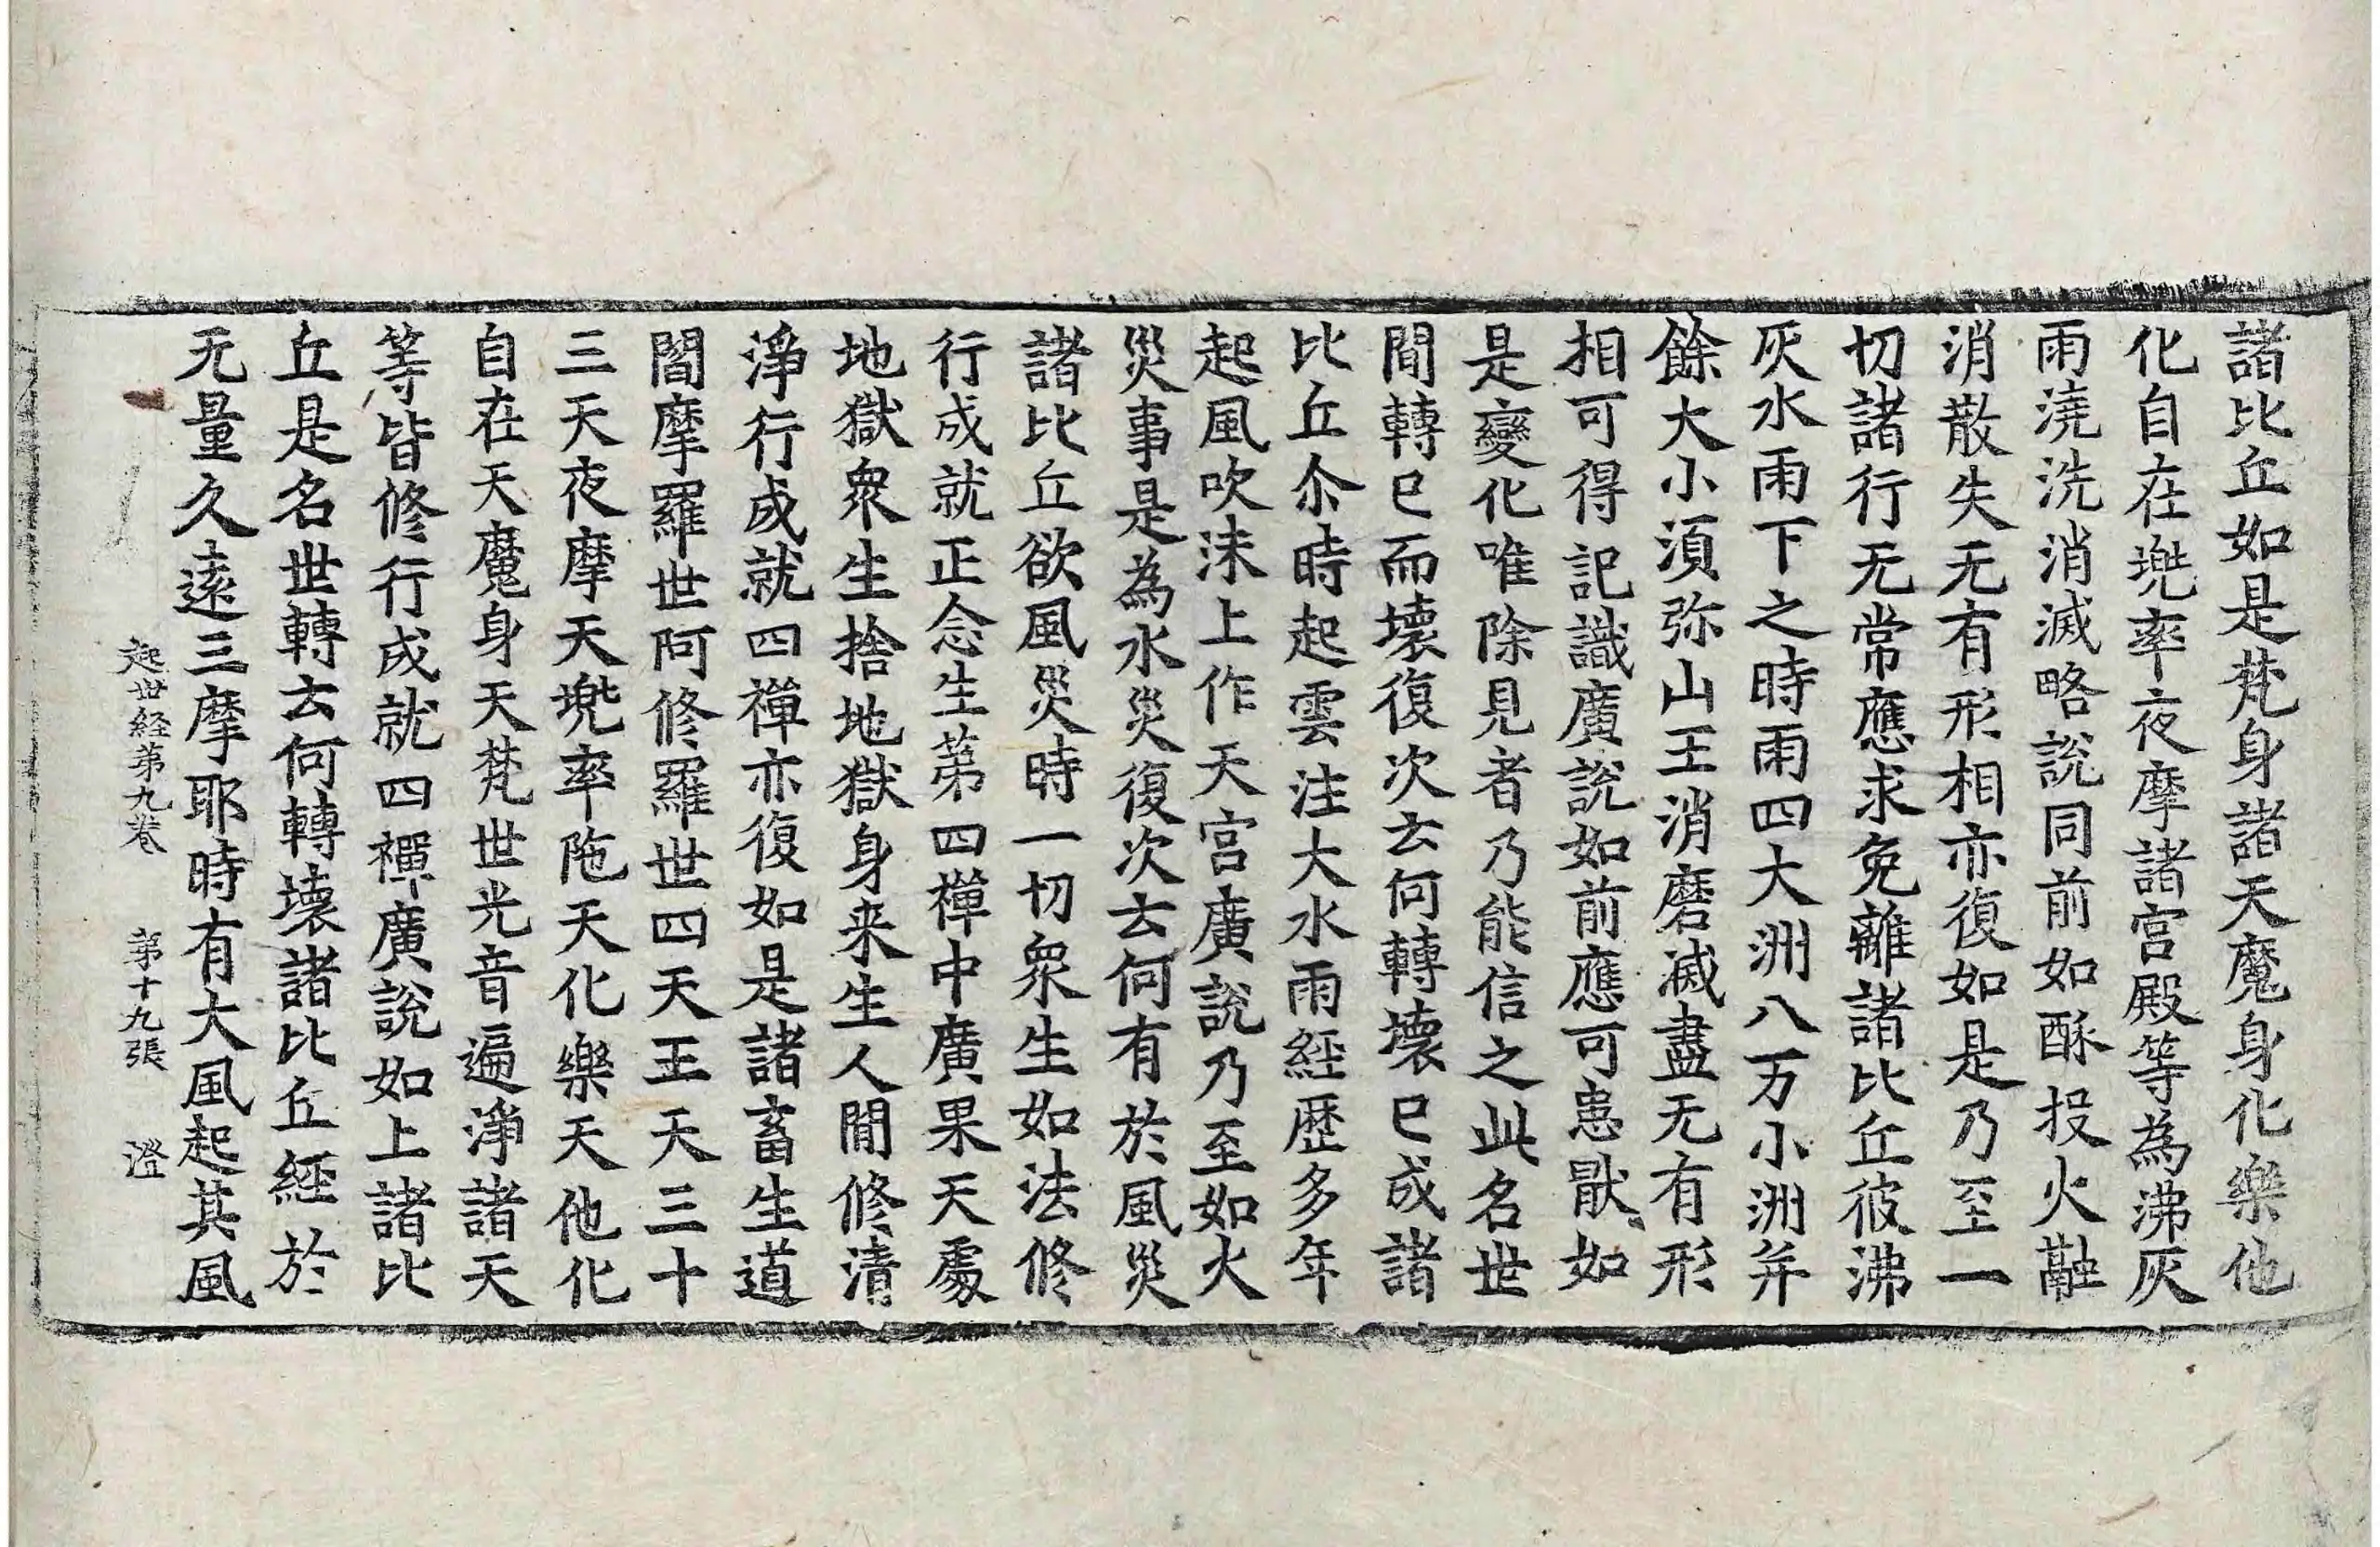 諸比丘如是梵身諸天魔身化樂他
化自在兠率夜摩諸宮殿等為沸灰
雨澆洗消滅略說同前如酥投火融
消散失无有形相亦復如是乃至一
切諸行无常應求免離諸比丘彼沸
灰水雨下之時雨四大洲八万小洲并
餘大小湏弥山王消磨滅盡无有形
相可得記識廣說如前應可患猒如
是變化唯除見者乃能信之此名世
間轉已而壞復次云何轉壞已成諸
比丘尒時起雲注大水雨經歷多年
起風吹沫上作天宮廣說乃至如火
災事是為水災復次云何有於風災
諸比丘欲風災時一切衆生如法修
行成就正念生苐四禪中廣果天處
地獄衆生捨地獄身来生人間修清
淨行成就四禪亦復如是諸畜生道
閻摩羅世阿修羅世四天王天三十
三天夜摩天兠率陁天化樂天他化
自在天魔身天梵世光音遍淨諸天
等皆修行成就四禪廣說如上諸比
丘是名世轉云何轉壞諸比丘經於
无量久遠三摩耶時有大風起其風
起世経苐九卷 苐十九張 澄